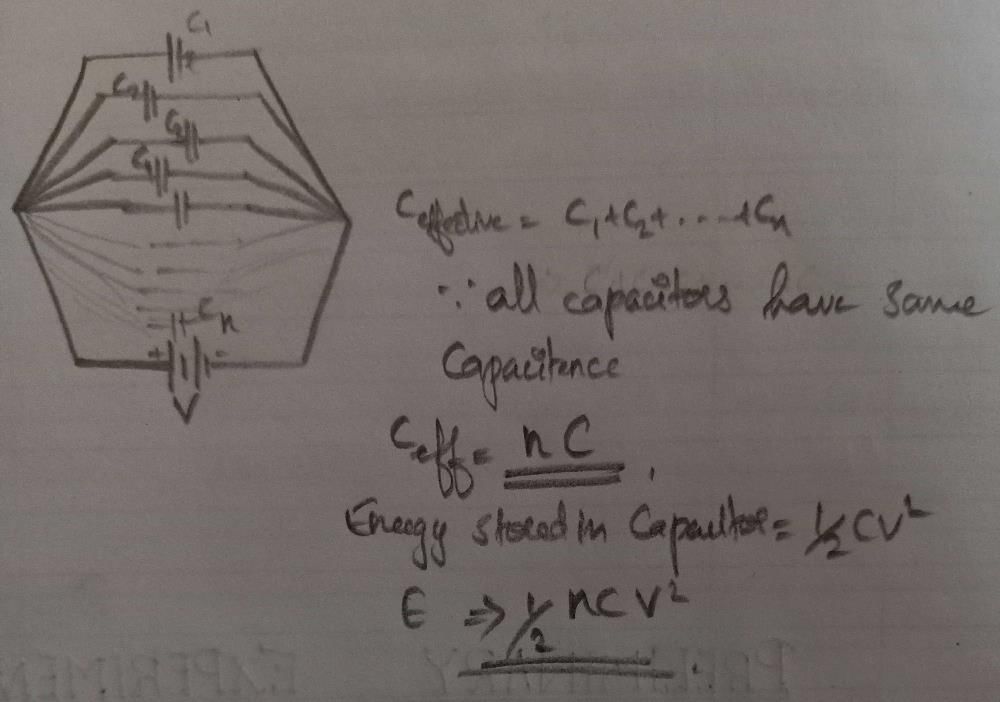 C₁
C₂
C₃
C₄
Cₙ
+ -
V
Ceffective = C₁+C₂+.....+Cₙ
∵ all capacitors have same
Capacitence
Ceff = nC.
Energy stored in Capacitor = 1/2 CV²
E ⇒ 1/2 nCV².
PRELIMINARY EXPERIMEN